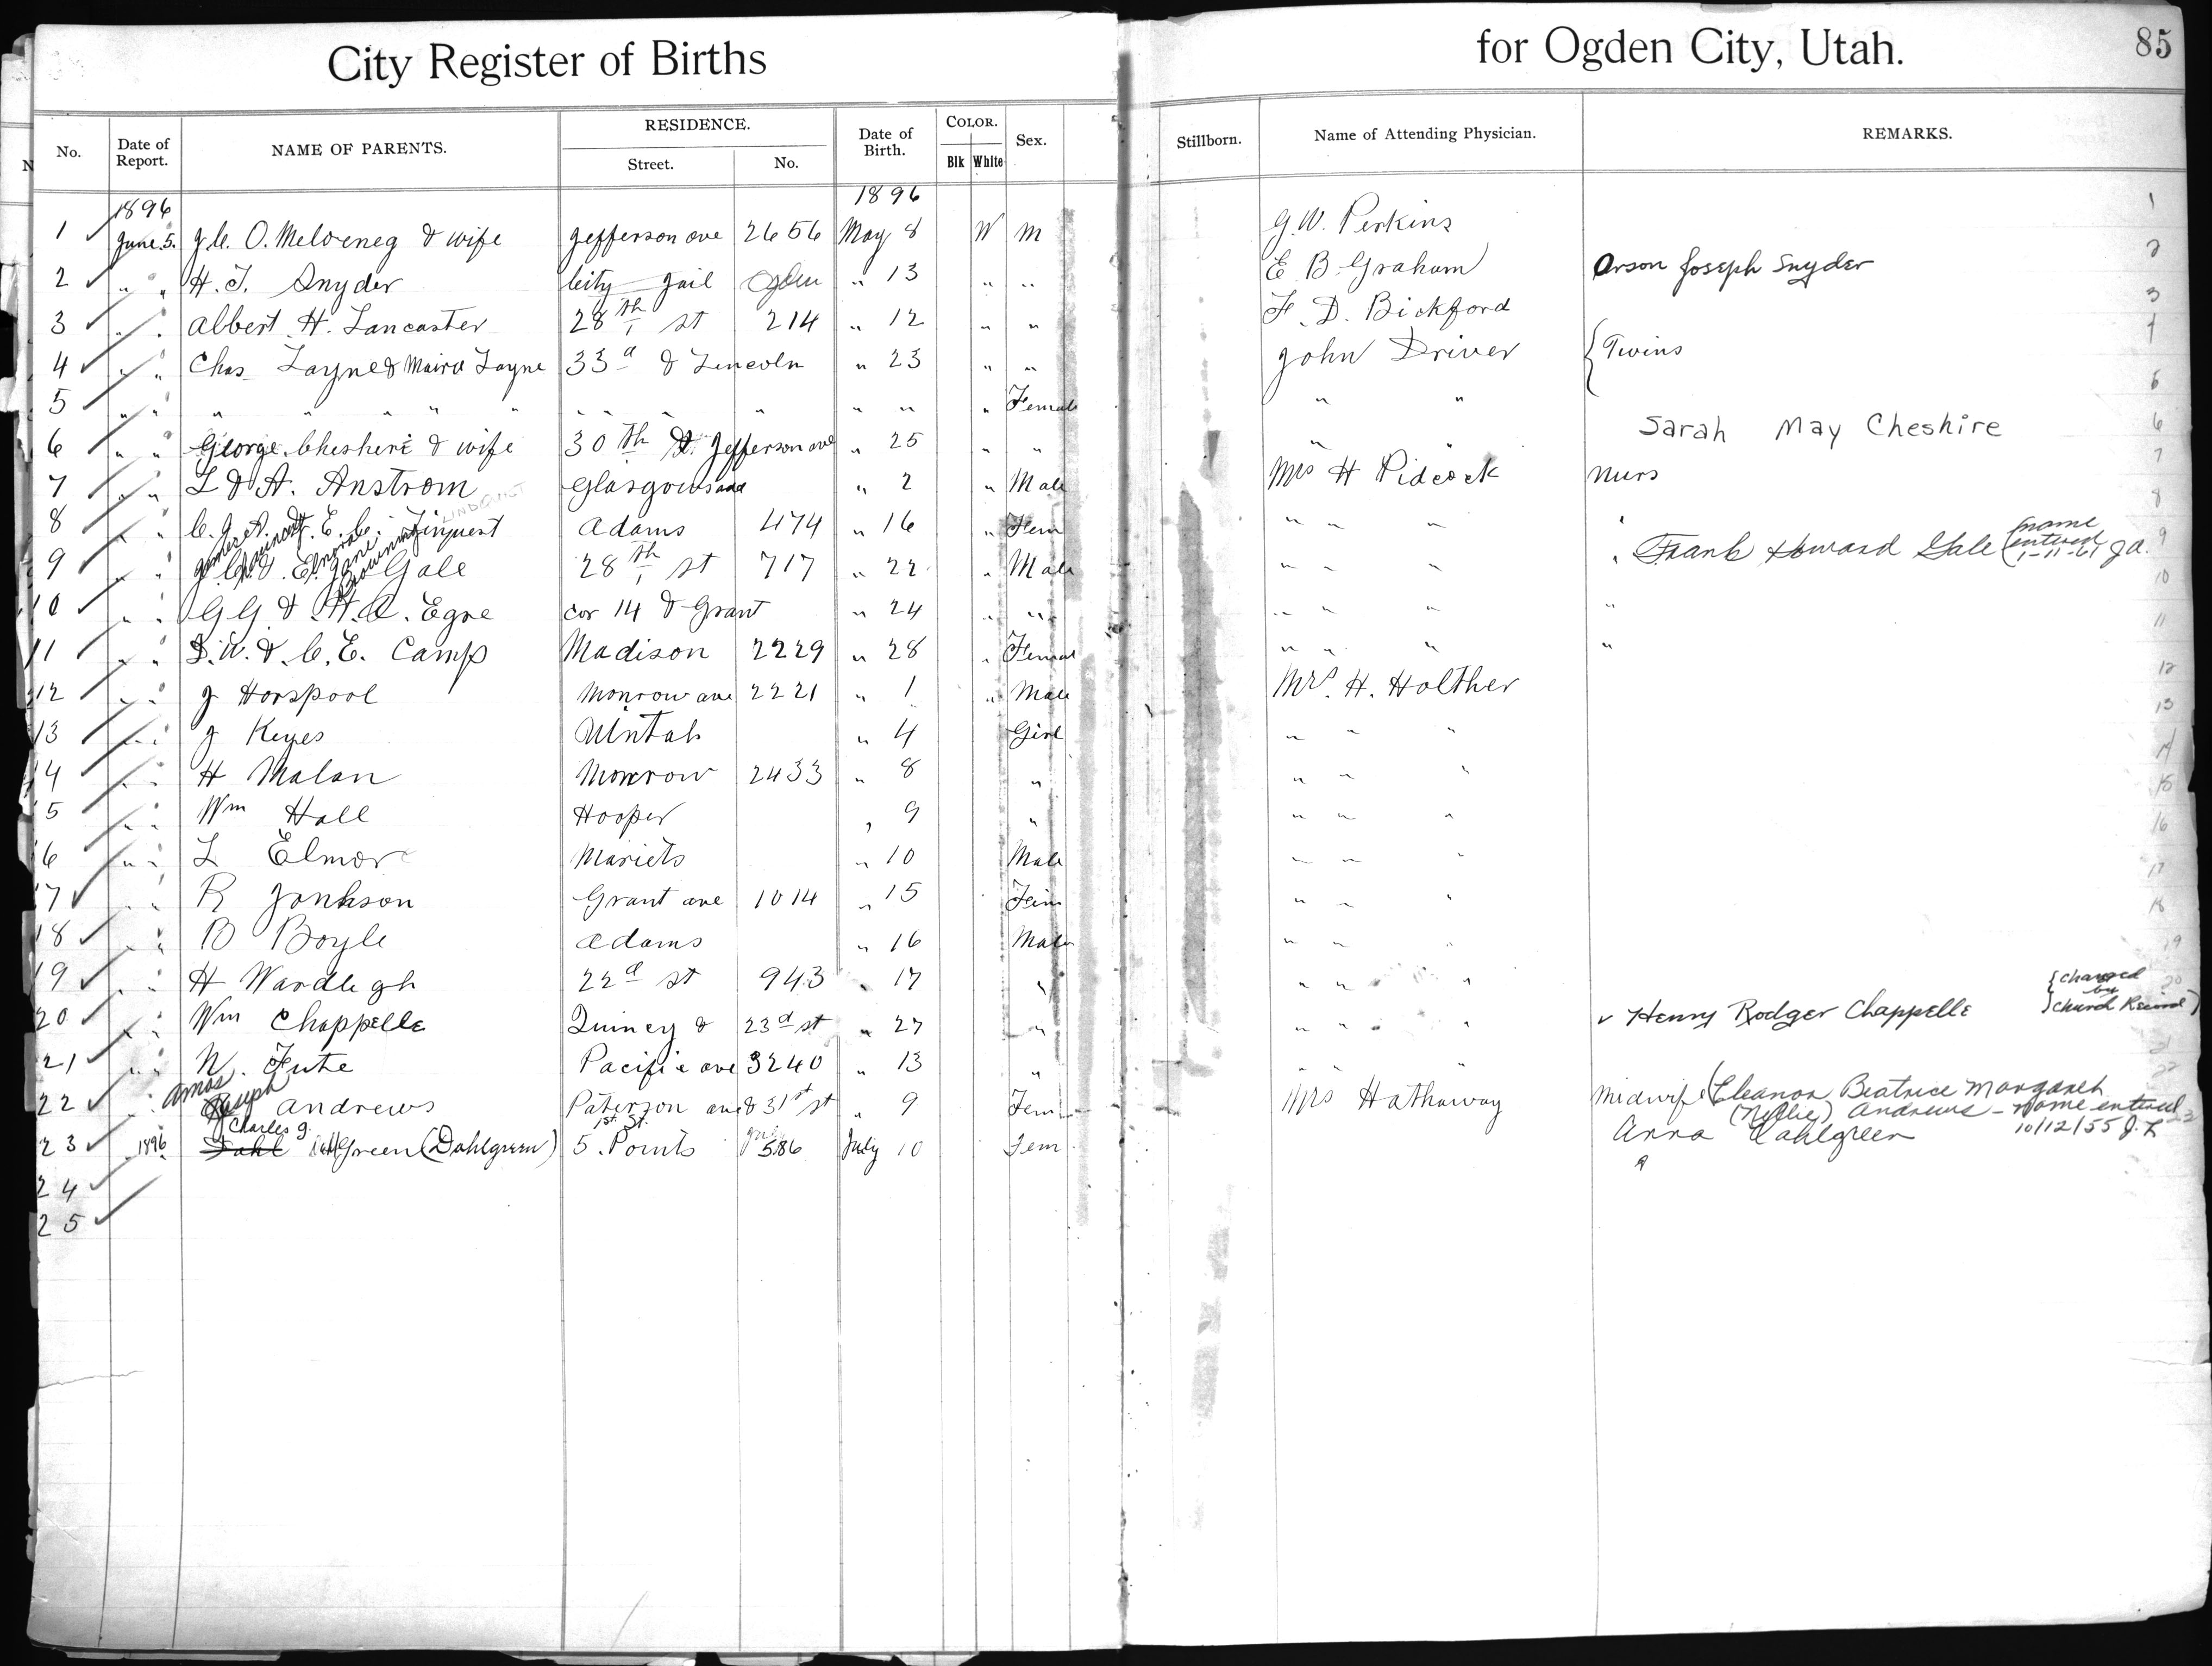 City Register of Births for Ogden City, Utah. 85
No. Date of Report. NAME OF PARENTS. RESIDENCE. Street. No. Date of Birth. COLOR. Blk White Sex. Stillborn. Name of Attending Physician. REMARKS.
1896 1896
1 June 5. O. & wife Jefferson ave 2656 May 8 W M G.W. Perkins 1
2 " " H. J. Snyder City Jail Ogden " 13 " " E B Graham Orson Joseph Snyder 2
3 " " Albert H. Lancaster 28th st 214 " 12 " " F. D. Bickford 3
4 " " Chas Layne & Layne 33d & Lincoln " 23 " " John Driver { Twins 4
5 " " " " " " " " " " " " " " " Female " "
6 " " George Cheshire & wife 30th St. Jefferson ave " 25 " " " " Sarah May Cheshire 6
7 " " L & A. Anstrom Glasgow " 2 " Male Mrs H Pidcock Nurs 7
8 " " Adams 474 " 16 " Fem " " " " 8
9 " " Gale 28th st 717 " 22 " Male " " " " Frank Howard Gale (name entered 1-11-61 J.A. 9
10 " " G G & H. A. Egne cor 14 & Grant " 24 " " " " " " 10
11 " " & C. E. Camp Madison 2229 " 28 " Femal " " " " 11
12 " " J Horspool Monrow ave 2221 " 1 " Male Mrs. H. Holther 12
13 " " J Keyes Uintah " 4 Girl " " " 13
14 " " H Malan Monrow 2433 " 8 " " " " 14
15 " " Wm Hall Hooper " 9 " " " " 15
16 " " L Elmor Mariets " 10 Male " " " 16
17 " " R Jonhson Grant ave 1014 " 15 Fem " " " 17
18 " " B Boyle Adams " 16 Male " " " 18
19 " " H Wardlegh 22d st 943 " 17 " " " " 19
20 " " Wm Chappelle Quincy & 23d st " 27 " " " " Henry Rodger Chappelle {changed by Church Record) 20
21 " " N. Fute Pacific ave 3240 " 13 " " " 21
22 " Amos Joseph Andrews Paterson ave & 31st st " 9 Fem Mrs Hathaway Midwife (Eleanor Beatrice Margaret (Nellie) Andrews - Name entered 10/12/55 J. L 22
23 1896 Charles J. Dahl Green (Dahlgreen) 1st St. 5. Points 586 July 10 Fem Anna Dahlgreen 23
24
25